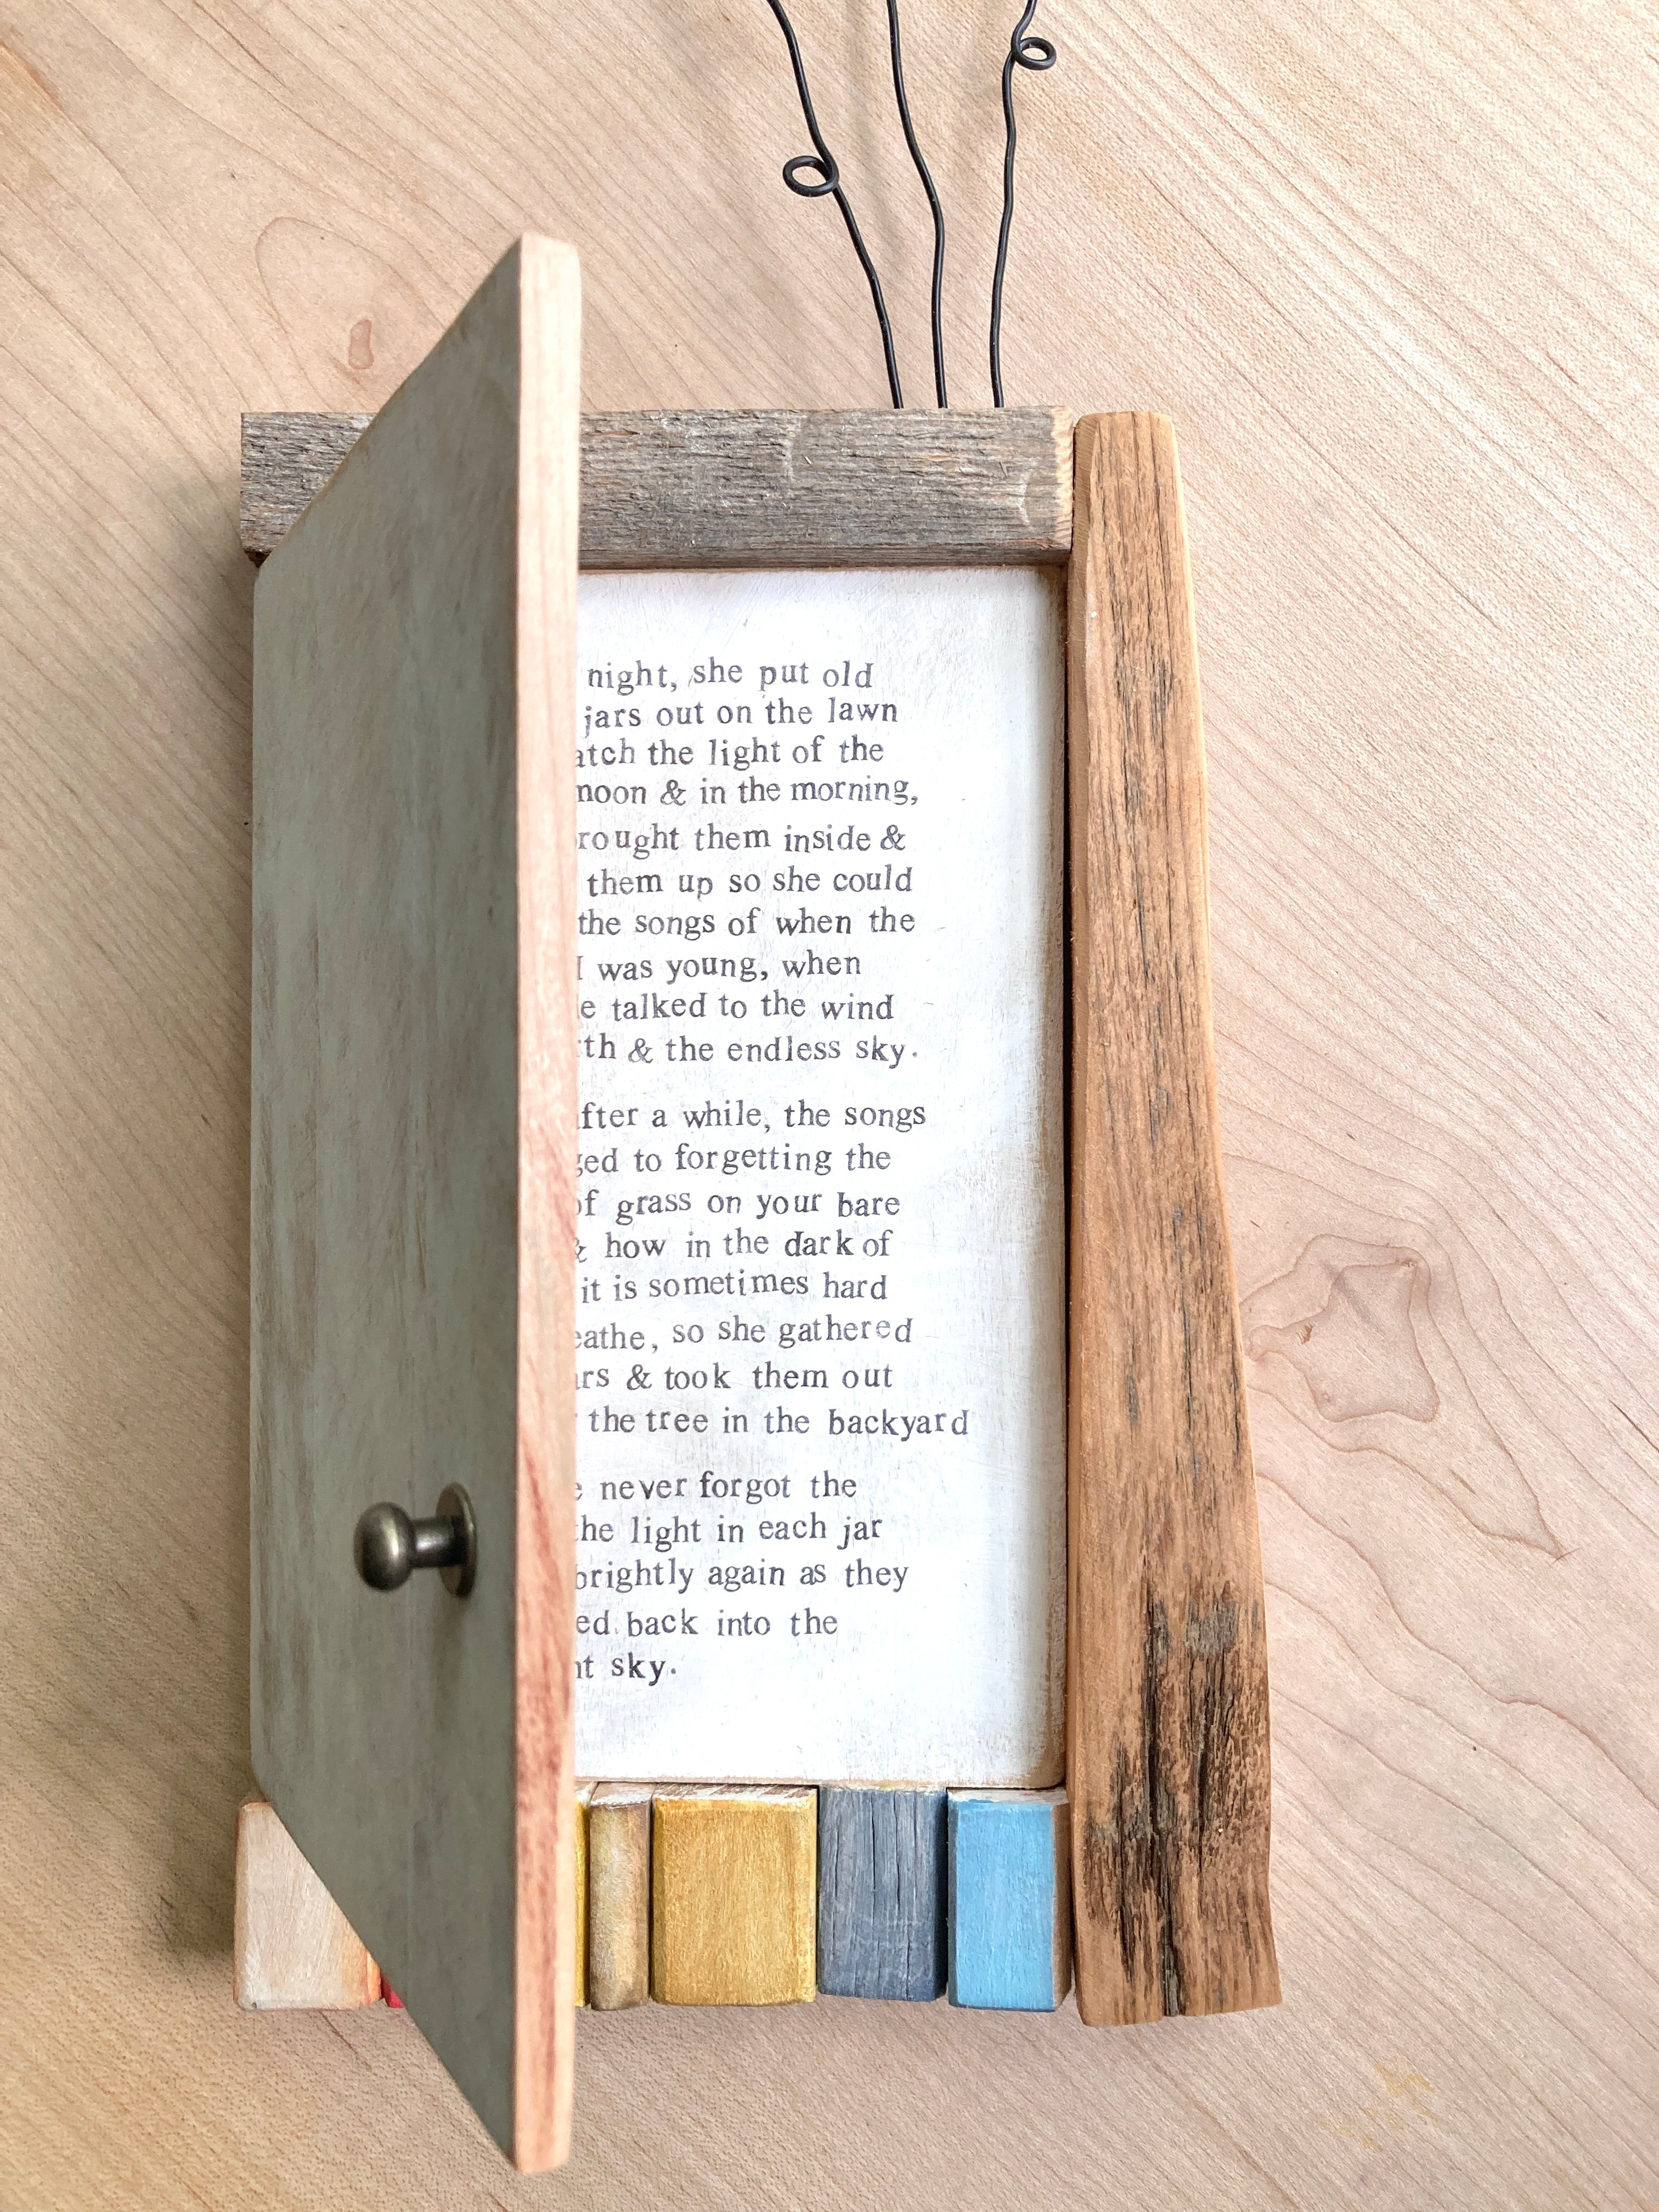 night, she put old
jars out on the lawn
atch the light of the
moon & in the morning,
rought them inside &
them up so she could
the songs of when the
was young, when
e talked to the wind
th & the endless sky.
fter a while, the songs
ged to forgetting the
of grass on your bare
& how in the dark of
it is sometimes hard
eathe, so she gathered
rs & took them out
the tree in the backyard
e never forgot the
the light in each jar
brightly again as they
ed back into the
ht sky.